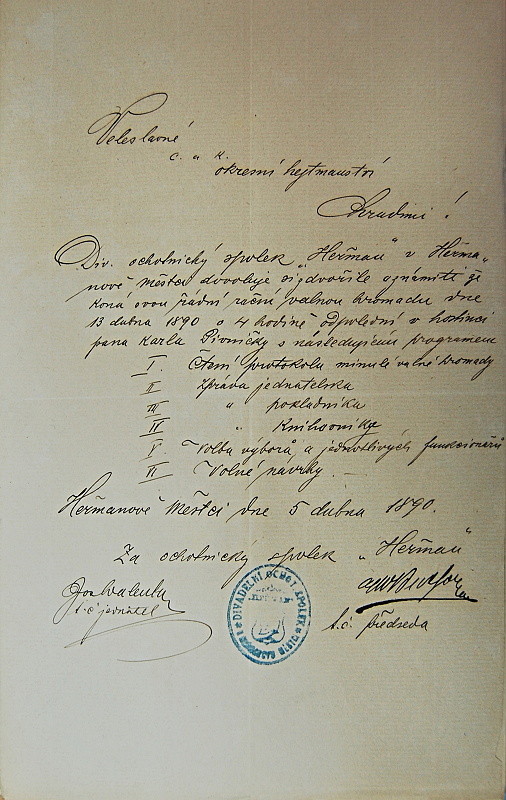 Veleslavné
c. a k.
okresní hejtmanství
Chrudimi!
Div. ochotnický spolek „Heřman" v Heřma„
nově městci dovoluje si zdvořile oznámiti že
koná svou řádní roční valnou hromadu dne
13 dubna 1890 o 4 hodině odpolední v hostinci
pana Karla s následujícím programem
I. Čtení protokolu minulé valné hromady
II Zpráva jednatelska
III " pokladníka
IV " Knihovníka
V. Volba výborů a jednotlivých funkcionářů
VI Volné návrhy. —
Heřmanově Městci dne 5 dubna 1890.
Za ochotnický spolek „Heřman"
t. č. jednatel
t. č. předseda
DIVADELNÍ OCHOT. SPOLEK